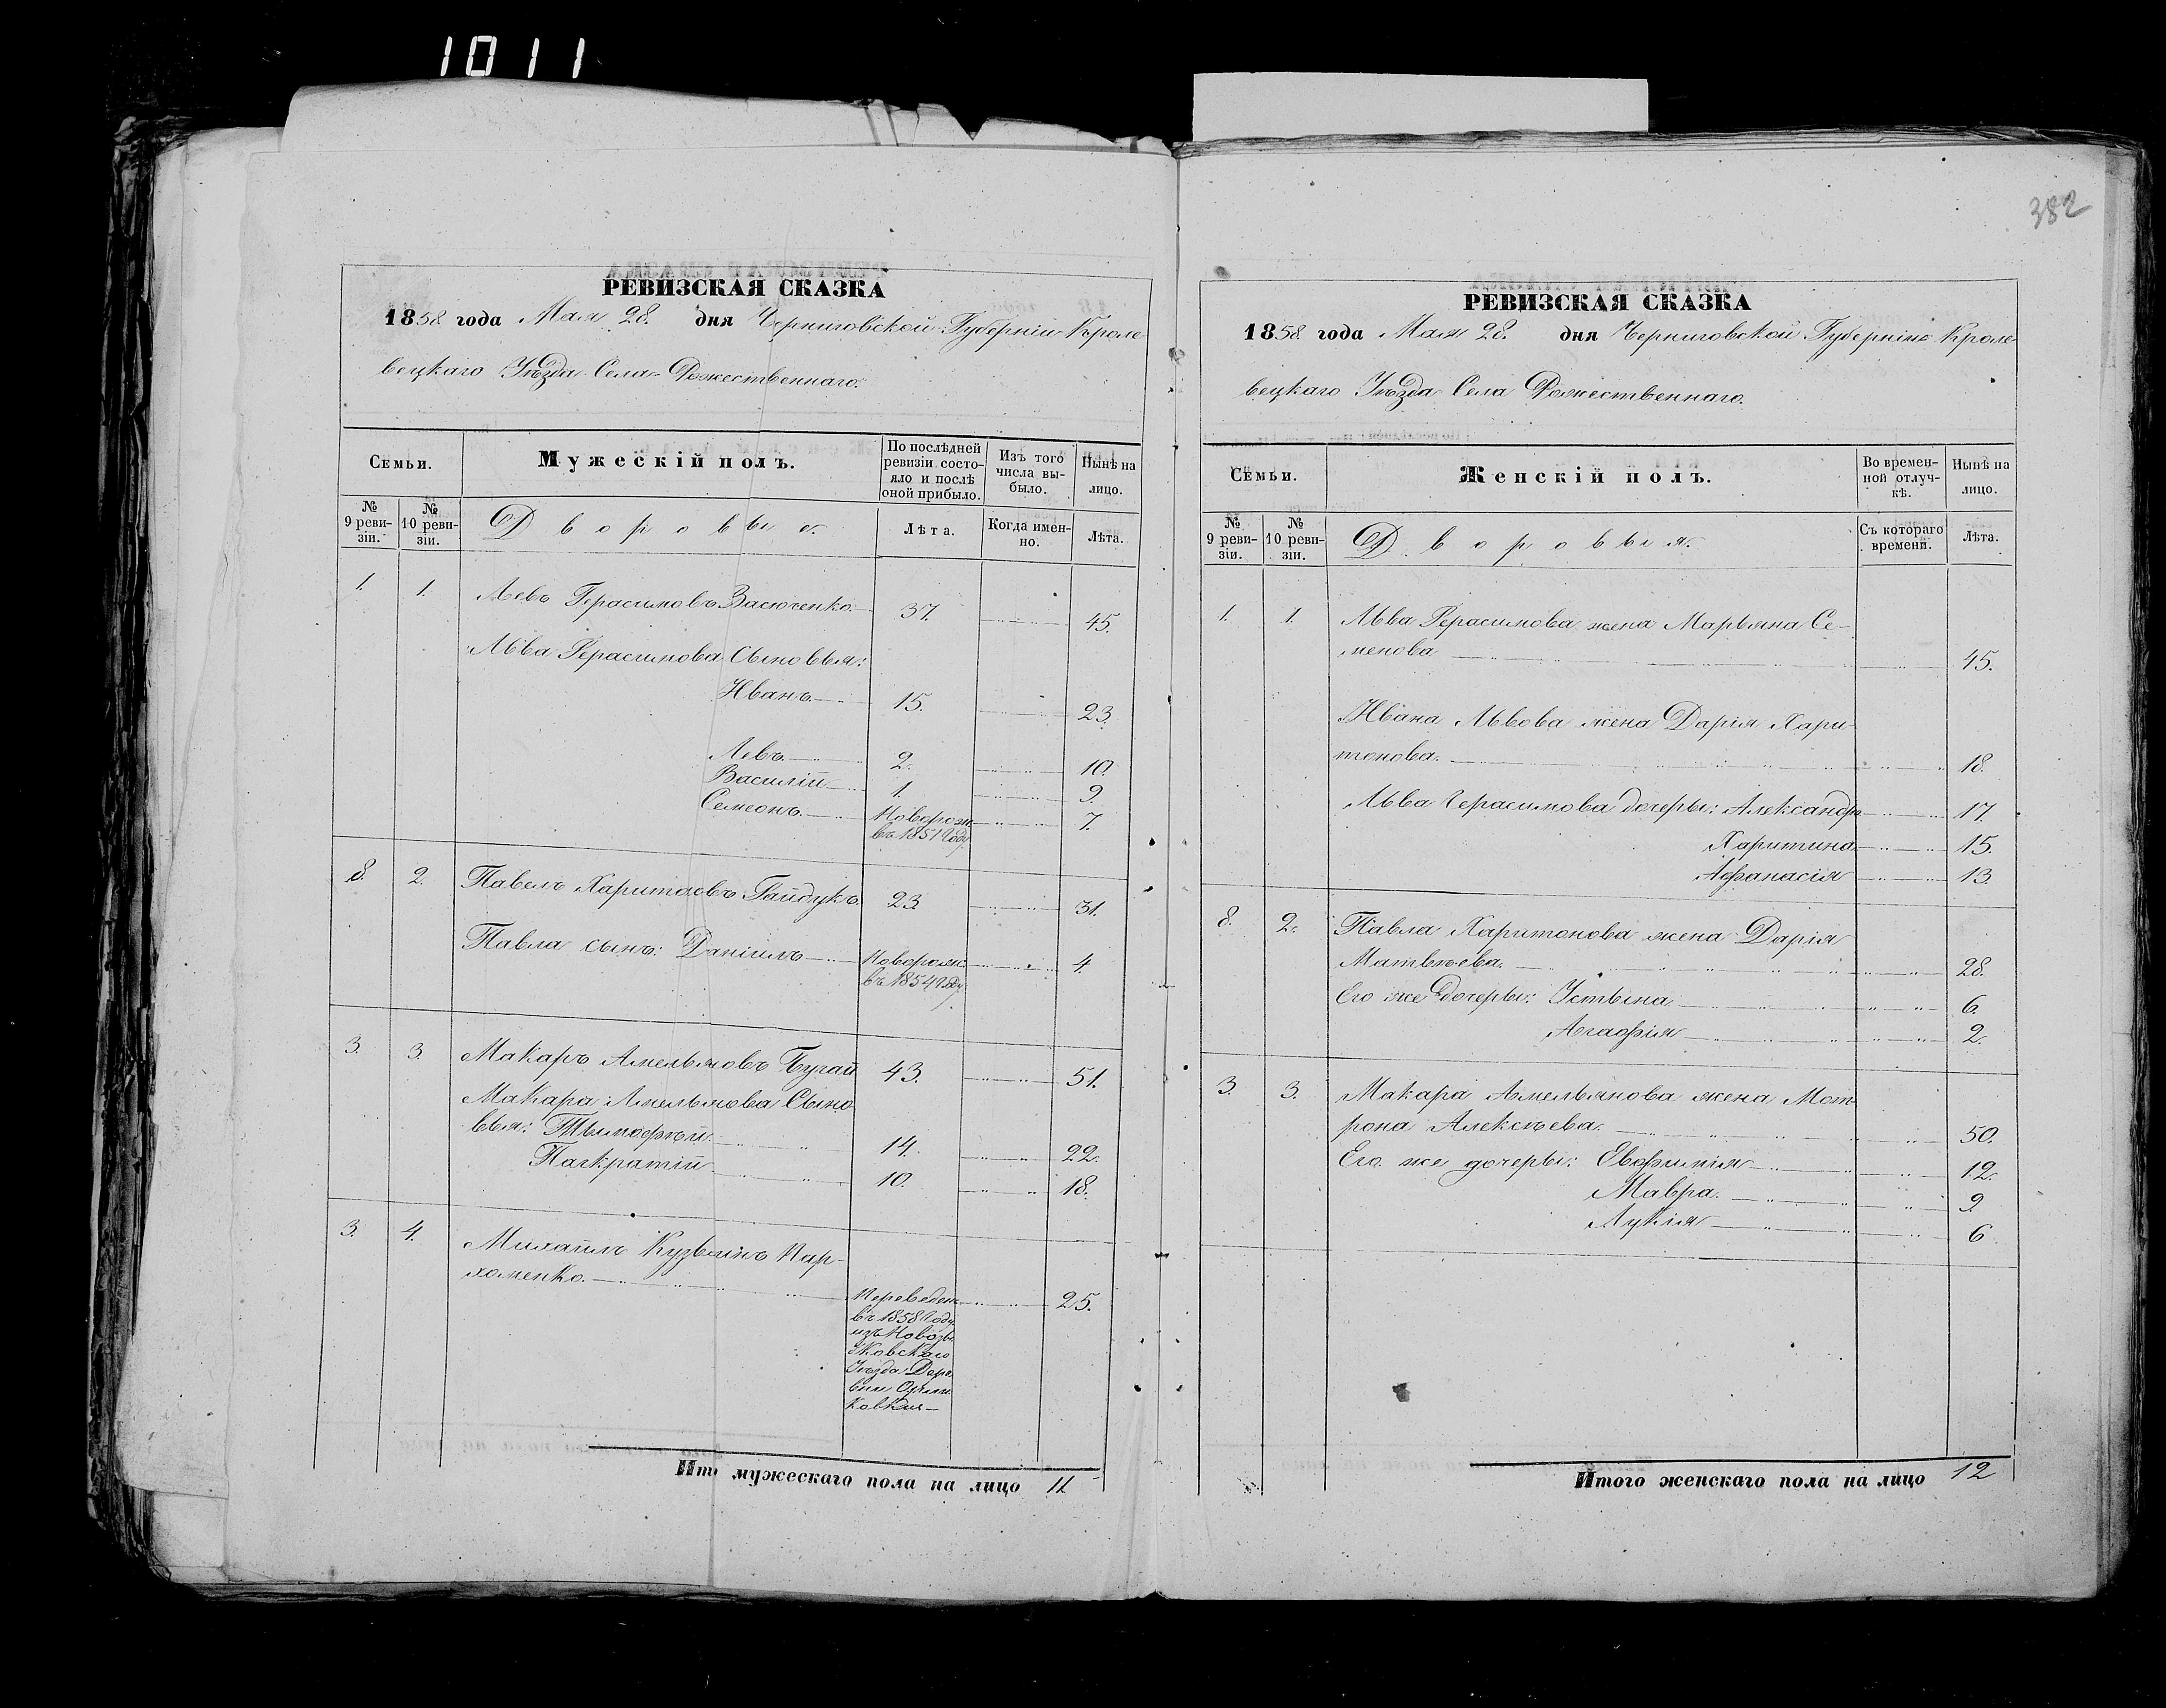 1011
382
РЕВИЗСКАЯ СКАЗКА
1858 года Мая 28. дня Черниговской Губернии Кроле-
вецкаго Уѣзда Села Рожественнаго.
Семьи.
Мужескій полъ.
По послѣдней ревизіи состояло и послѣ оной прибыло.
Изъ того числа выбыло.
Нынѣ на лицо.
№ 9 ревизіи.
№ 10 ревизіи.
Дворовыя.
Лѣта.
Когда именно.
Лѣта.
1. 1. Левъ Герасимовъ Васюченко. 37. 45.
Льва Герасимова Сыновья:
Иванъ 15. 23.
Левъ 2. 10.
Василій 1. 9.
Семеонъ. Новорож. 7.
въ 1851 году.
8. 2. Павелъ Харитоновъ Гайдукъ. 23. 31.
Павла сынъ: Даніилъ Новорож. 4.
въ 1854 году.
3. 3. Макаръ Амельяновъ Бугай 43. 51.
Макара Амельянова Сыно-
вья: Тымофѣй 14. 22.
Панкратій 10. 18.
3. 4. Михайлъ Кузьминъ Пар-
хоменко. Переведен 25.
въ 1858 году
изъ Новозы
бковскаго
Уѣзда Дере
вни
Итого мужескаго пола на лицо 11
РЕВИЗСКАЯ СКАЗКА
1858 года Мая 28. дня Черниговской Губерніи Кроле-
вецкаго Уѣзда Села Рожественнаго.
Семьи.
Женскій полъ.
Во временной отлучкѣ.
Нынѣ на лицо.
№ 9 ревизіи.
№ 10 ревизіи.
Дворовыя.
Съ котораго времени.
Лѣта.
1. 1. Льва Герасимова жена Марьяна Се-
менова 45.
Ивана Львова жена Дарія Хари-
тонова. 18.
Льва Герасимова дочеры: Александра 17.
Харитина 15.
Афанасія 13.
8. 2. Павла Харитонова жена Дарія
Матвѣева. 28.
Его же дочеры: Устына 6.
Агафія 2.
3. 3. Макара Амельянова жена Мот-
рона Алексѣева. 50.
Его же дочеры: Евфимія 12.
Мавра. 9
Лукія 6
Итого женскаго пола на лицо 12